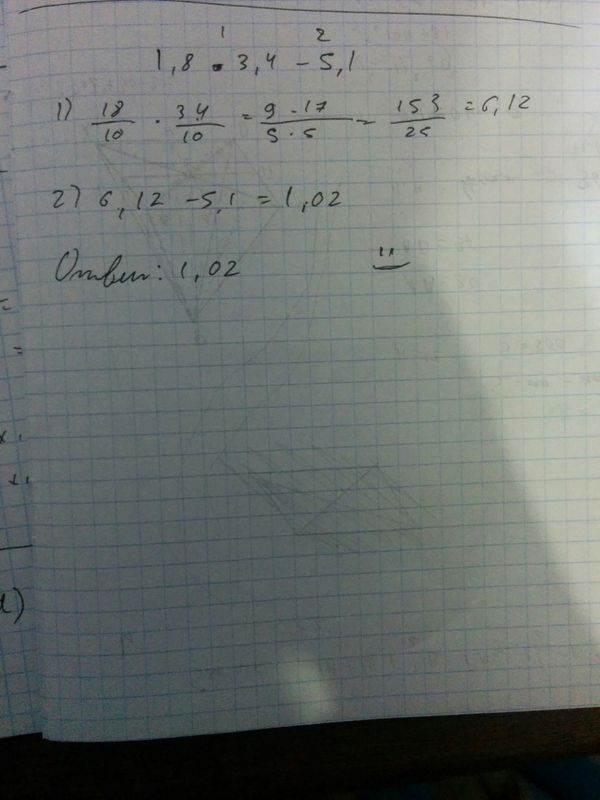 1 2
1,8 · 3,4 - 5,1
1) 18/10 · 34/10 = 9 · 17/5 · 5 = 153/25 = 6,12
2) 6,12 - 5,1 = 1,02
Ответ: 1,02